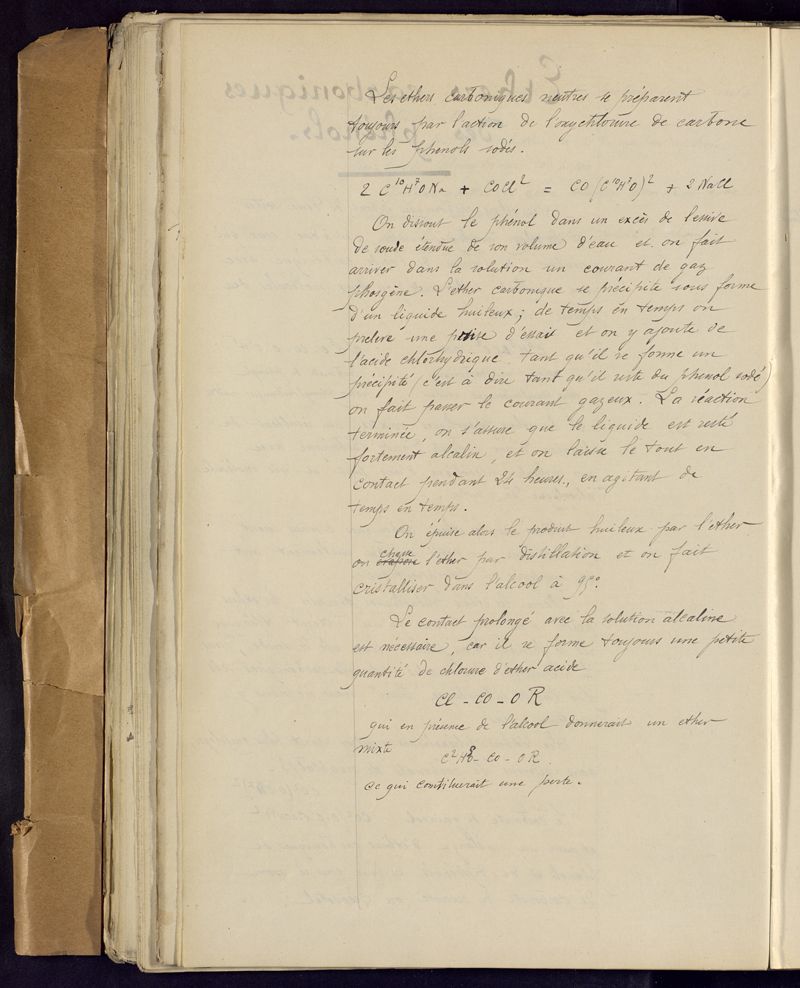 Les ethers carboniques neutres se préparent
toujours par l'action de l'oxychlorure de carbone
sur les phenols sodés.
2 C¹⁰H⁷ONa + COCl² = CO(C¹⁰H⁷O)² + 2 NaCl
On dissout le phénol dans un excès de lessive
de soude étendue de son volume d'eau et on fait
arriver dans la solution un courant de gaz
phosgène. L'ether carbonique se précipite sous forme
d'un liquide huileux ; de temps en temps on
prelève une prise d'essai et on y ajoute de
l'acide chlorhydrique tant qu'il se forme un
précipité (c'est à dire tant qu'il reste du phenol sodé)
on fait passer le courant gazeux. La réaction
terminée, on s'assure que le liquide est resté
fortement alcalin, et on laisse le tout en
contact pendant 24 heures, en agitant de
temps en temps.
On épuise alors le produit huileux par l'ether
on chasse l'ether par distillation et on fait
cristalliser dans l'alcool à 95°.
Le contact prolongé avec la solution alcaline
est nécessaire, car il se forme toujours une petite
quantité de chlorure d'ether acide
Cl - CO - OR
qui en présence de l'alcool donnerait un ether
mixte
CO - OR.
ce qui constituerait une perte.